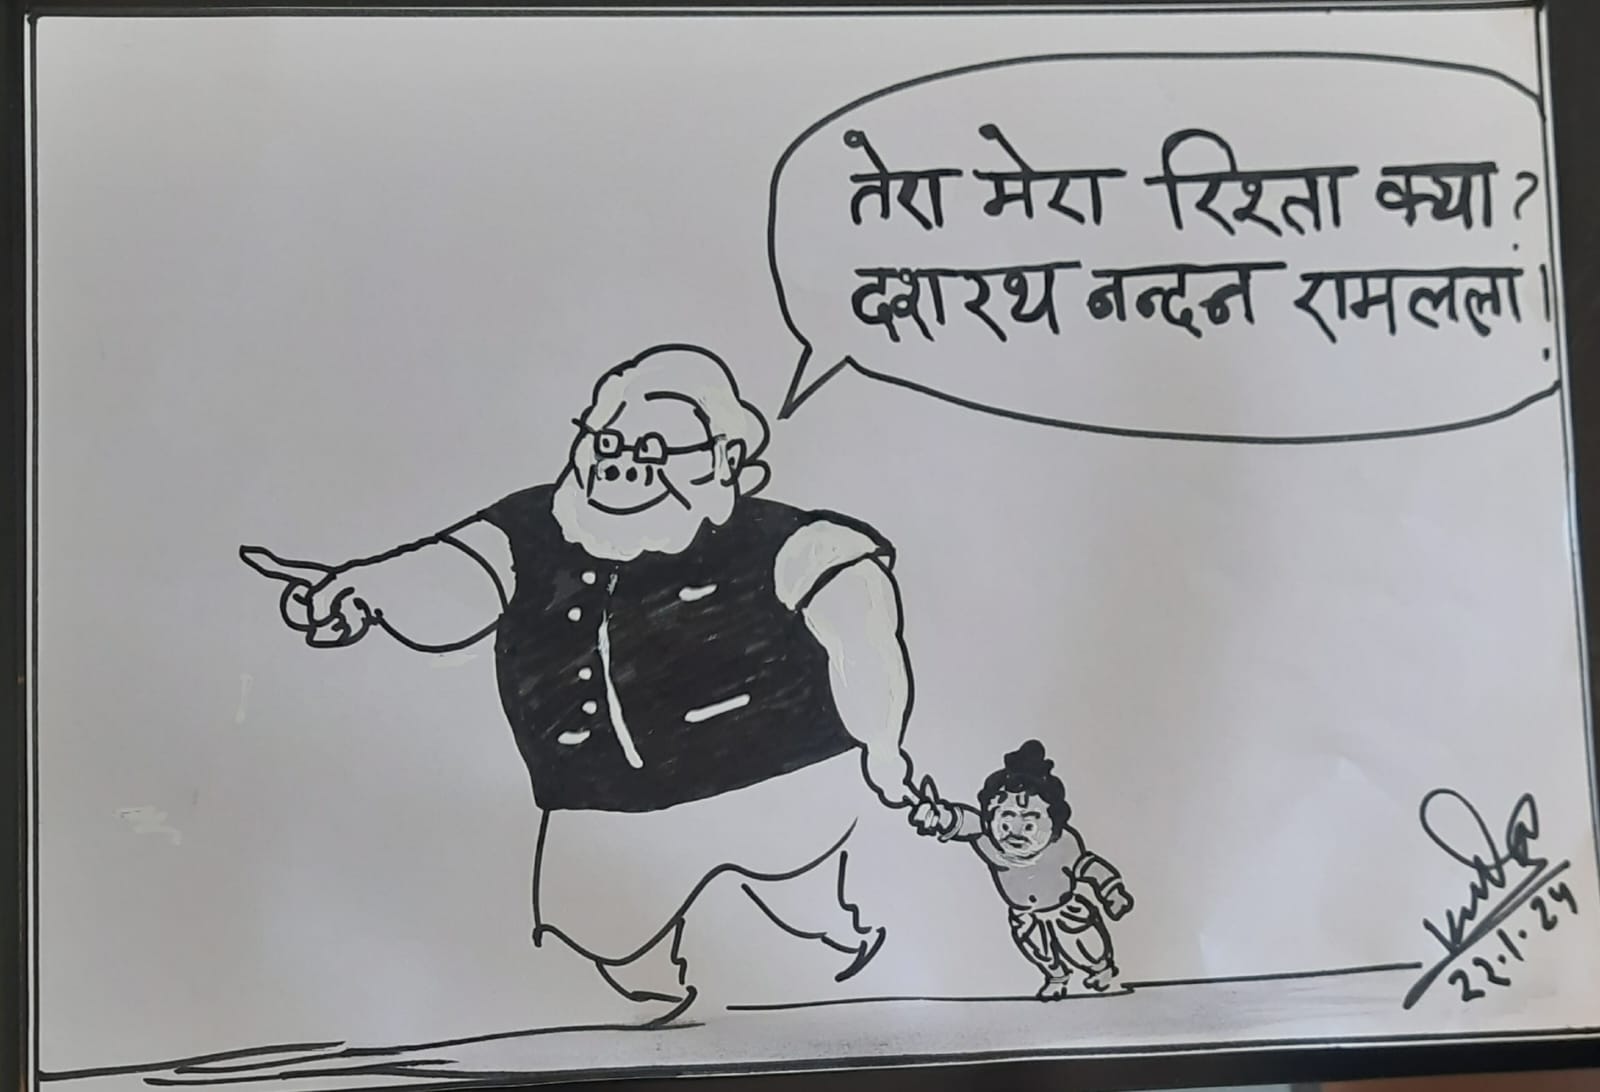 तेरा मेरा रिश्ता क्या?
दशरथ नन्दन रामलला!
22.1.24